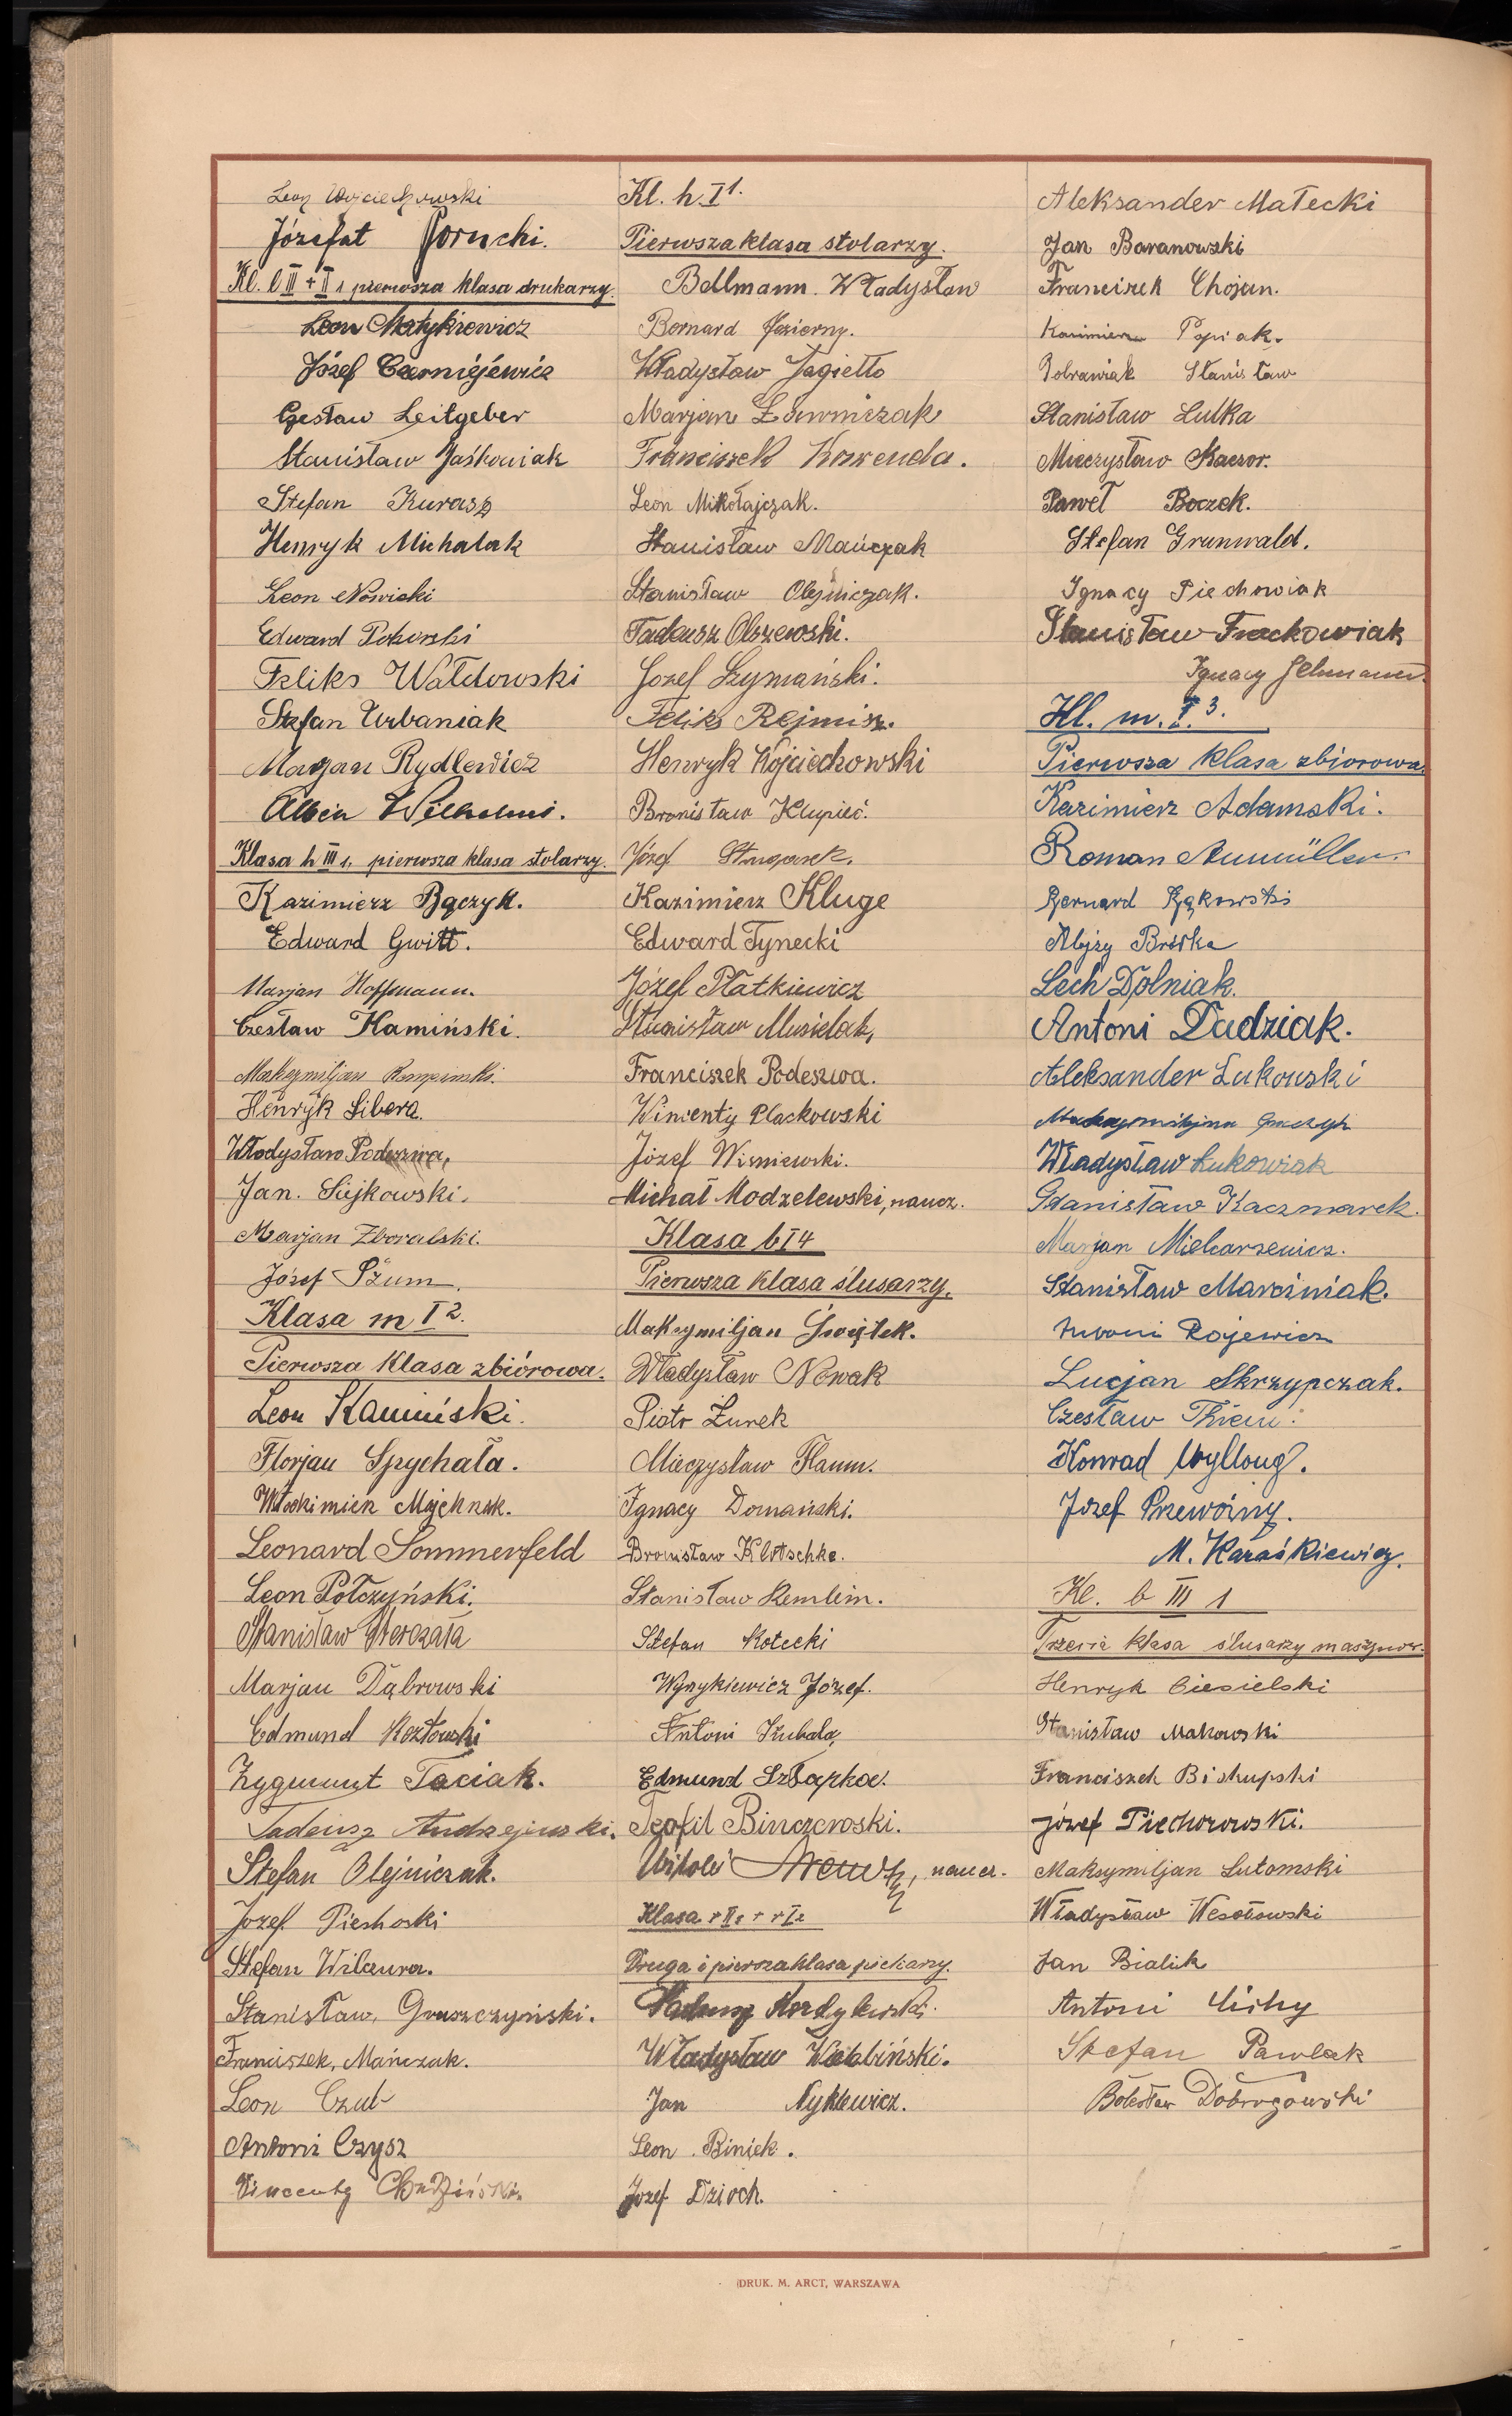 Leon Wojciechowski
Józefat Porucki.
Kl. l III + II 1 pierwsza klasa drukarzy.
Leon Matykiewicz
Józef Czerniejéwicz
Czesław Leitgeber
Stanisław Jaśkowiak
Stefan Kurasz
Henryk Michalak
Leon Nowicki
Edward
Feliks Wałdowski
Stefan Urbaniak
Marjan Rydlewicz
Albin Wilhelmi.
Klasa h III 1. pierwsza klasa stolarzy.
Kazimierz Bączyk.
Edward Gwitt.
Marjan Hoffmann.
Czesław Kamiński.
Maksymiljan
Henryk Libera.
Władysław Podeszwa,
Jan. Sujkowski.
Marjan Zboralski.
Józef Szum.
Klasa m I 2.
Pierwsza Klasa zbiórowa.
Leon Kamiński.
Florjan Spychała.
Włodzimierz
Leonard Sommerfeld
Leon Połczyński.
Stanisław
Marjan Dąbrowski
Edmund Kozłowski
Zygmunt Taciak.
Tadeusz Andrzejewski.
Stefan Olejniczak.
Jozef
Stefan
Stanisław, Gruszczyński.
Franciszek, Mańczak.
Leon Czub
Antoni Czysz
Vincenty Chudziński.
Kl. h. I 1.
Pierwsza klasa stolarzy.
Bellmann. Władysław
Bernard Jezierny.
Władysław Jagiełło
Marjan Ławniczak
Franciszek Korzenda.
Leon Mikołajczak.
Stanisław Mańczak
Stanisław Olejniczak.
Tadeusz Olszewski.
Jozef Szymański.
Feliks Rejmisz.
Henryk Wojciechowski
Bronisław Klupieć.
Józef Strugarek.
Kazimierz Kluge
Edward Tynecki
Józef Płatkiewicz
Stanisław Musielak,
Franciszek Podeszwa.
Wincenty Plackowski
Józef Wisniewski.
Michał Modzelewski, naucz.
Klasa b I 4
Pierwsza klasa ślusarzy.
Maksymiljan Świątek.
Władysław Nowak
Piotr Żurek
Mieczysław Flaum.
Ignacy Domański.
Bronisław Klotschke.
Stanisław Remlein.
Stefan Kotecki
Wynykiewicz Józef.
Antoni Kubala,
Edmund Szłapka.
Teofil Binczewski.
Witold naucz.
Klasa r II 2 + r I 2
Druga i pierszaklasa piekarzy.
Tadeusz Kordylewski.
Władysław
Jan Nyklewicz.
Leon. Biniek.
Jozef Dzioch.
Aleksander Małecki
Jan Baranowski
Franciszek Chojan.
Kazimierz Popiak.
Dobrawiak Stanisław
Stanisław Lulka
Mieczysław Kaczor.
Paweł Boczek.
Stefan Grunwald.
Ignacy Piechowiak
Stanisław Frackowiak
Ignacy
Kl. m. I. 3.
Pierwsza klasa zbiorowa.
Kazimierz Adamski.
Roman Aumüller.
Bernard Bąkowski
Alojzy Bröske
Lech Dolniak.
Antoni Dudziak.
Aleksander Łukowski
Maksymiljan
Władysław Łukowiak
Stanisław Kaczmarek.
Marjan Mielcarzewicz.
Stanisław Marciniak.
Antoni Rojewicz
Lucjan Skrzypczak.
Czesław Thiem.
Konrad
Józef Przewoźny.
M. Karaśkiewicz.
Kl. b III 1
Trzecia klasa ślusarzy maszynow.
Henryk Ciesielski
Stanisław Makowski
Franciszek Biskupski
Józef Piechorowski.
Maksymiljan Lutomski
Władysław Wesołowski
Jan Bialik
Antoni Cichy
Stefan Pawlak
Bolesław Dobrogowski
DRUK. M. ARCT, WARSZAWA